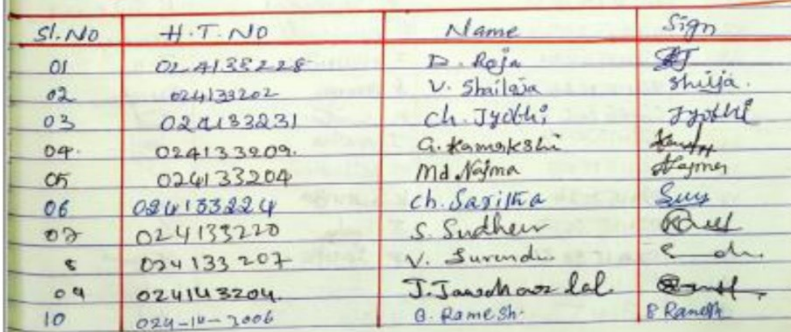 Sl.No H.T.NO Name Sign
01 024133228 D. Roja
02 024133202 V. Shailaja Shilja.
03 024133231 Ch. Jyothi Jyothi
04. 024133209. G. Kamakshi
05 024133204 Md Najma Najma
06 024133224 Ch. Saritha
07 024133220 S. Sudheer
8 024133207 V. Surendr.
09 024143204. J. Jawahar lal.
10 024-14-3006 B. Ramesh. B Ramesh